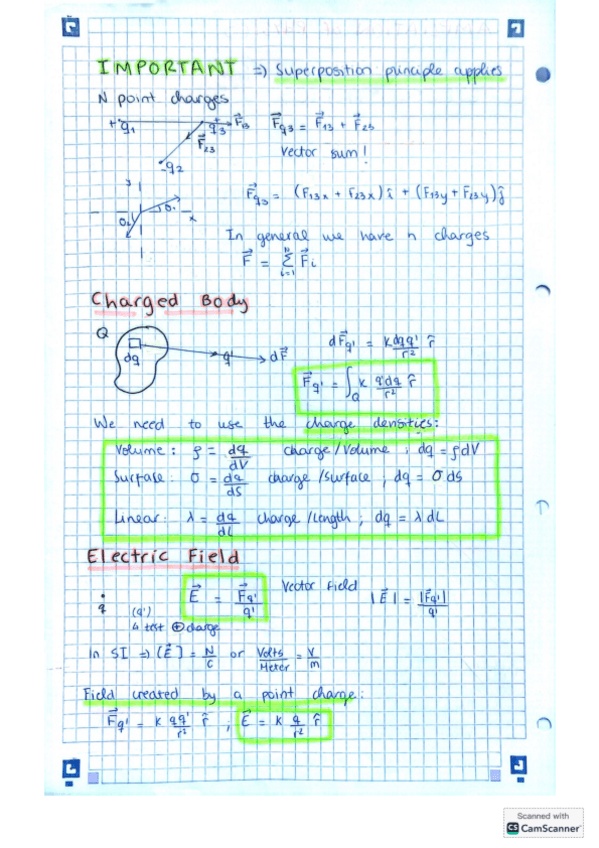 IMPORTANT ⇒ Superposition principle applies
N point charges
+ q₁ + q₃ F⃗₁₃ F⃗q₃ = F⃗₁₃ + F⃗₂₃
F⃗₂₃
Vector sum!
q₂
y
F⃗q₃ = (F₁₃x + F₂₃x) î + (F₁₃y + F₂₃y) ĵ
x
In general we have n charges
F⃗ = Σ F⃗i
i=1
Charged Body
Q
dq q' dF⃗
dF⃗q' = k dq q' / r² r̂
F⃗q' = ∫Q k q'dq / r² r̂
We need to use the charge densities:
Volume: ρ = dq/dV charge/Volume ; dq = ρdV
Surface: σ = dq/dS charge/surface ; dq = σ dS
Linear: λ = dq/dL charge/length ; dq = λ dL
Electric Field
q (q') E⃗ = F⃗q' / q' Vector Field |E⃗| = |F⃗q'| / q'
↳ test ⊕ charge
In SI ⇒ [E⃗] = N/C or Volts/Meter = V/m
Field created by a point charge:
F⃗q' = k qq'/r² r̂ ; E⃗ = k q/r² r̂
Scanned with
CS CamScanner